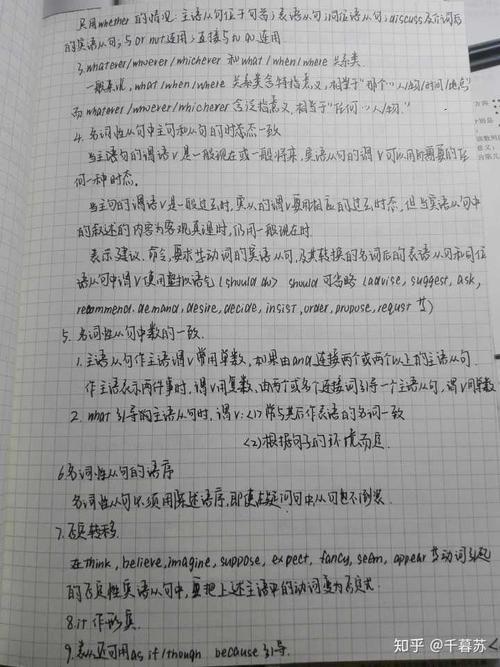 只用whether的情况:主语从句位于句首;表语从句;同位语从句;discuss及介词后
的宾语从句;与or not连用;直接与to do 连用
3.whatever/whoever/whichever 和what/when/where 关系类
一般来说,what/when/where 关系类含特指意义,相当于"那个…人/物/时间/地点"
而whatever/whoever/whichever含泛指意义,相当于"任何…人/物."
4.名词性从句中主句和从句的时态一致
当主语句的谓语v是一般现在或一般将来,宾语从句的谓v可以用所需要的任
何一种时态.
当主句的谓语v是一般过去时,宾从的谓v要用相应的过去时态,但当宾语从句中
的叙述的内容为客观真理时,仍用一般现在时.
表示建议、命令、要求些动词的宾语从句,及其转换的名词后的表语从句和同位
语从句中谓v使用虚拟语气(should do) should可省略(advise, suggest, ask,
recommend, demand, desire, decide, insist, order, propose, requst 等)
5.名词性从句中数的一致.
1.主语从句作主语谓v常用单数,如果由and连接两个或两个以上的主语从句
作主语表示两件事时,谓v用复数,由两个或多个连接词引导一个主语从句,谓v用单数
2.what引导的主语从句时,谓v:<1>常与其后作表语的名词一致
<2>根据句子的环境而息
6.名词性从句的语序
名词性从句必须用陈述语序,即使在疑问句中,从句也不倒装.
7.否定转移.
在think, believe,imagine, suppose, expect, fancy, seem, appear等动词引起
的否定性宾语从句中,要把上述主语中的动词变为否定式
8.it 作形宾.
9.表从还可用as if/though because引导.
知乎 @千暮苏